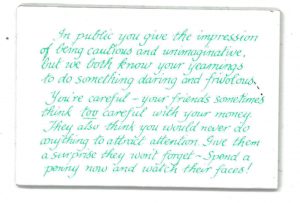 In public you give the impression
of being cautious and unimaginative,
but we both know your yearnings
to do something daring and frivolous.
You're careful – your friends sometimes
think too careful with your money.
They also think you would never do
anything to attract attention. Give them
a surprise they won't forget – Spend a
penny now and watch their faces!